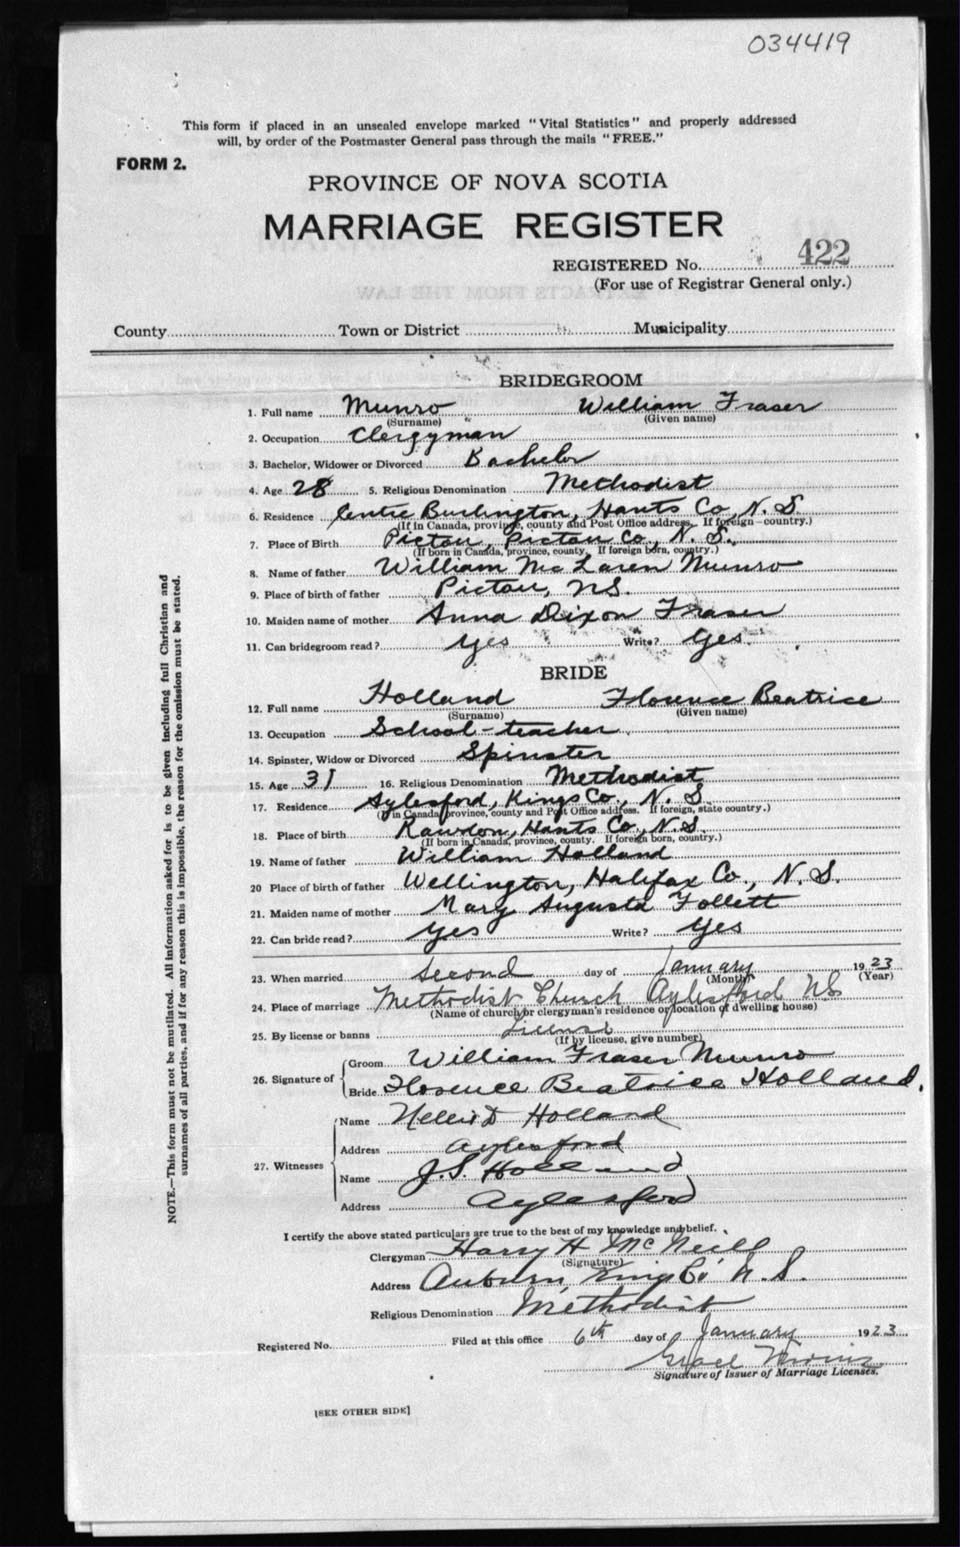 034419
This form if placed in an unsealed envelope marked "Vital Statistics" and properly addressed
will, by order of the Postmaster General pass through the mails "FREE."
FORM 2.
PROVINCE OF NOVA SCOTIA
MARRIAGE REGISTER
REGISTERED No. 422
(For use of Registrar General only.)
County Town or District Municipality
BRIDEGROOM
1. Full name Munro William Fraser
(Surname) (Given name)
2. Occupation Clergyman
3. Bachelor, Widower or Divorced Bachelor
4. Age 28 5. Religious Denomination Methodist
6. Residence Centre Burlington, Hants Co., N.S.
(If in Canada, province, county and Post Office address. If foreign—country.)
7. Place of Birth Pictou, Pictou Co., N.S.
(If born in Canada, province, county. If foreign born, country.)
8. Name of father William McLaren Munro
9. Place of birth of father Pictou, N.S.
10. Maiden name of mother Anna Dixon Fraser
11. Can bridegroom read? Yes Write? Yes
BRIDE
12. Full name Holland Florence Beatrice
(Surname) (Given name)
13. Occupation School-teacher
14. Spinster, Widow or Divorced Spinster
15. Age 31 16. Religious Denomination Methodist
17. Residence Aylesford, Kings Co., N.S.
(If in Canada, province, county and Post Office address. If foreign, state country.)
18. Place of birth Rawdon, Hants Co., N.S.
(If born in Canada, province, county. If foreign born, country.)
19. Name of father William Holland
20 Place of birth of father Wellington, Halifax Co., N.S.
21. Maiden name of mother Mary Augusta Follett
22. Can bride read? Yes Write? Yes
23. When married second day of January 1923
(Month) (Year)
24. Place of marriage Methodist Church Aylesford NS
(Name of church or clergyman's residence or location of dwelling house)
25. By license or banns License
(If by license, give number)
26. Signature of
Groom William Fraser Munro
Bride Florence Beatrice Holland.
27. Witnesses
Name Nellie D Holland
Address Aylesford
Name J.S. Holland
Address Aylesford
I certify the above stated particulars are true to the best of my knowledge and belief.
Clergyman Harry H. McNeill
(Signature)
Address Auburn, Kings Co N.S.
Religious Denomination Methodist
Registered No. Filed at this office 6th day of January 1923
Signature of Issuer of Marriage Licenses.
[SEE OTHER SIDE]
NOTE.—This form must not be mutilated. All information asked for is to be given including full Christian and
surnames of all parties, and if for any reason this is impossible, the reason for the omission must be stated.